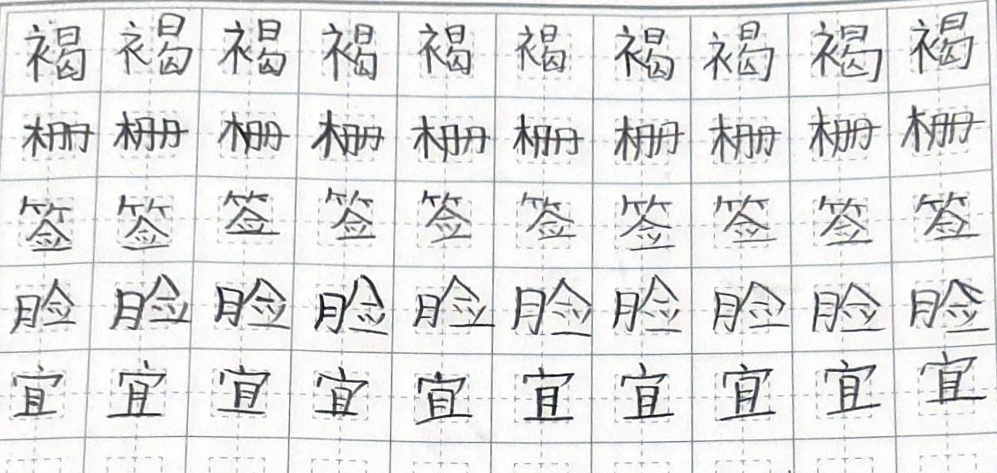 褐褐褐褐褐褐褐褐褐褐
栅栅栅栅栅栅栅栅栅栅
签签签签签签签签签签
脸脸脸脸脸脸脸脸脸脸
宜宜宜宜宜宜宜宜宜宜